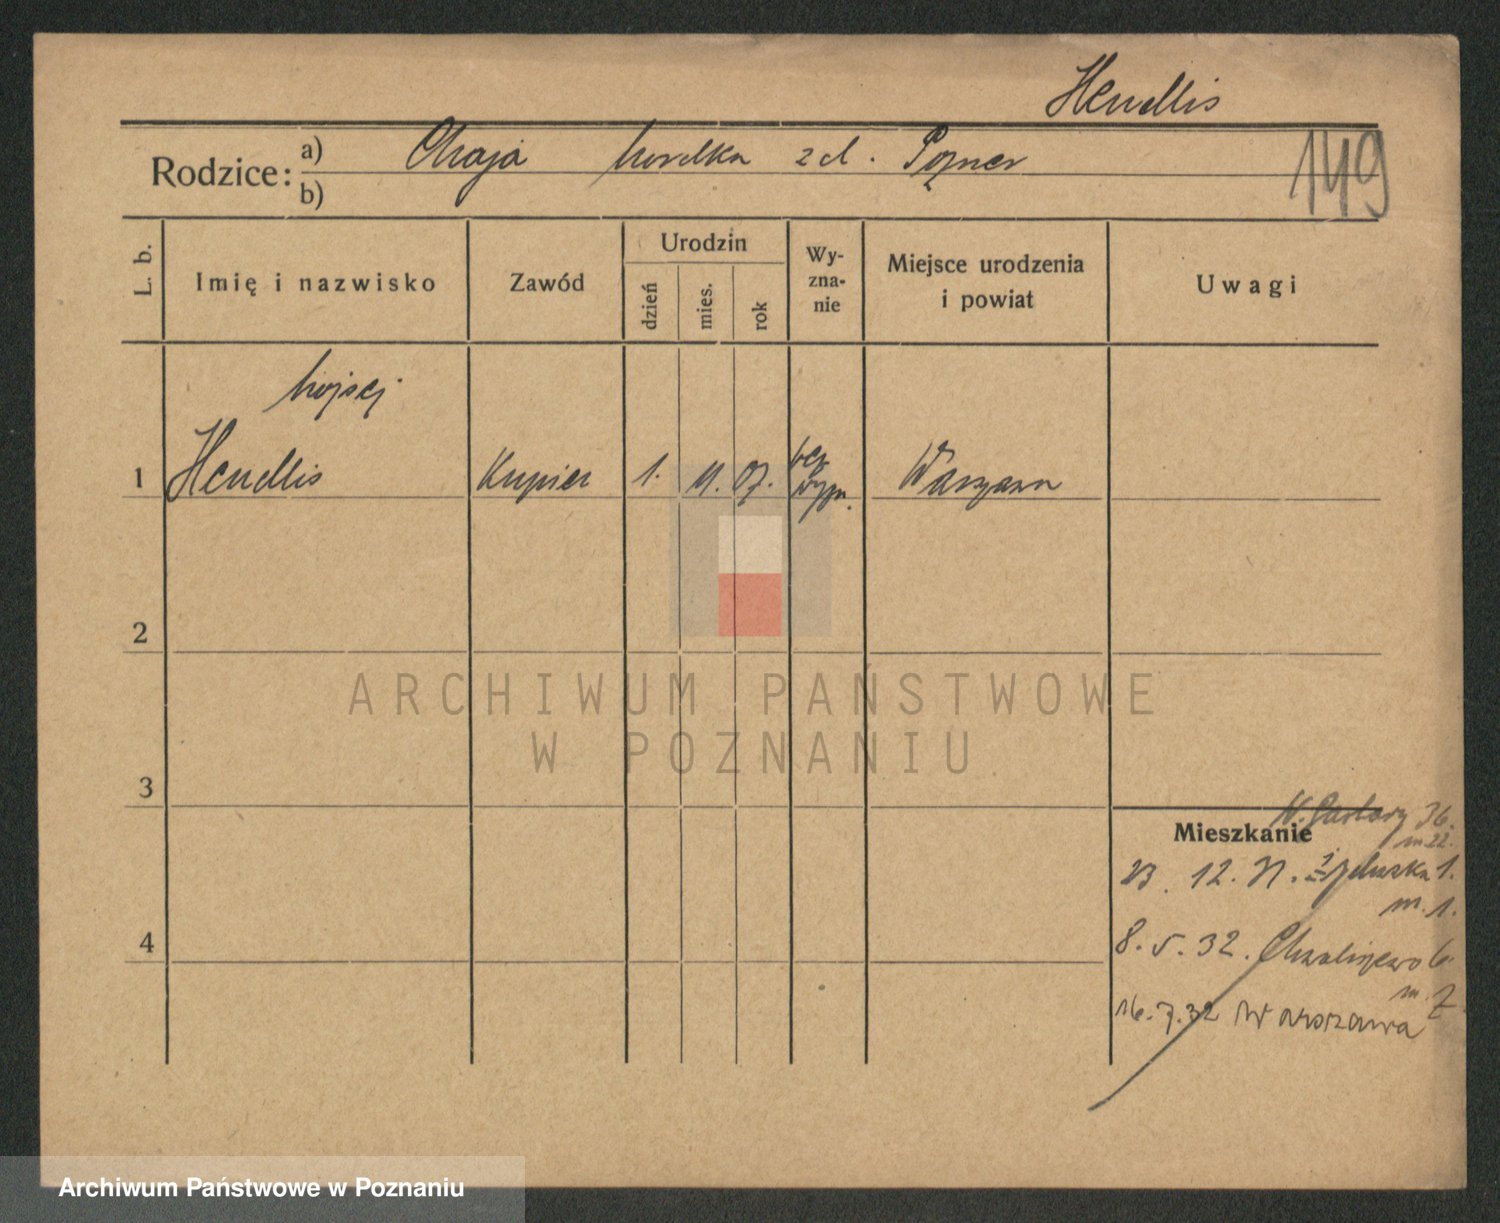 Hendlis
Rodzice: a) Chaja Mordka zd. Pozner
b)
149
L. b.
Imię i nazwisko
Zawód
Urodzin
dzień
mies.
rok
Wy-
zna-
nie
Miejsce urodzenia
i powiat
Uwagi
Mojsej
1 Hendlis Kupiec 1. 11. 07. bez Warszawa
wyzn.
2
ARCHIWUM PAŃSTWOWE
W POZNANIU
3
W. Garbary 36.
m 22.
Mieszkanie
23. 12. 31. 1.
m. 1.
8. 5. 32. Chwaliszewo 6.
m. 7
16. 7. 32 Warszawa
4
Archiwum Państwowe w Poznaniu